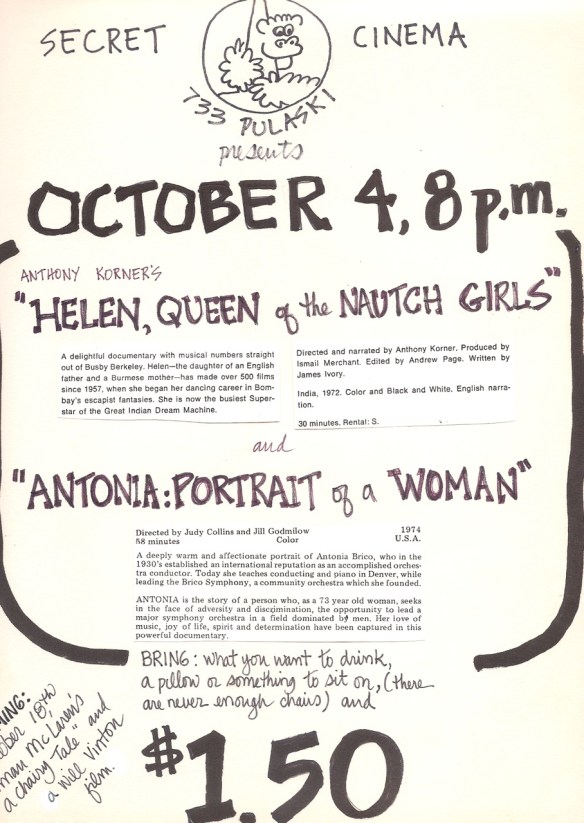 SECRET CINEMA
733 PULASKI
presents
OCTOBER 4, 8 p.m.
ANTHONY KORNER'S
"HELEN, QUEEN of the NAUTCH GIRLS"
A delightful documentary with musical numbers straight
out of Busby Berkeley. Helen—the daughter of an English
father and a Burmese mother—has made over 500 films
since 1957, when she began her dancing career in Bom-
bay's escapist fantasies. She is now the busiest Super-
star of the Great Indian Dream Machine.
Directed and narrated by Anthony Korner. Produced by
Ismail Merchant. Edited by Andrew Page. Written by
James Ivory.
India, 1972. Color and Black and White. English narra-
tion.
30 minutes. Rental: S.
and
"ANTONIA: PORTRAIT of a WOMAN"
Directed by Judy Collins and Jill Godmilow 1974
58 minutes Color U.S.A.
A deeply warm and affectionate portrait of Antonia Brico, who in the
1930's established an international reputation as an accomplished orches-
tra conductor. Today she teaches conducting and piano in Denver, while
leading the Brico Symphony, a community orchestra which she founded.
ANTONIA is the story of a person who, as a 73 year old woman, seeks
in the face of adversity and discrimination, the opportunity to lead a
major symphony orchestra in a field dominated by men. Her love of
music, joy of life, spirit and determination have been captured in this
powerful documentary.
BRING: what you want to drink,
a pillow or something to sit on, (there
are never enough chairs) and
$1.50
ING:
ober 18th
man McLaren's
"a chairy Tale" and
a Will Vinton
film.